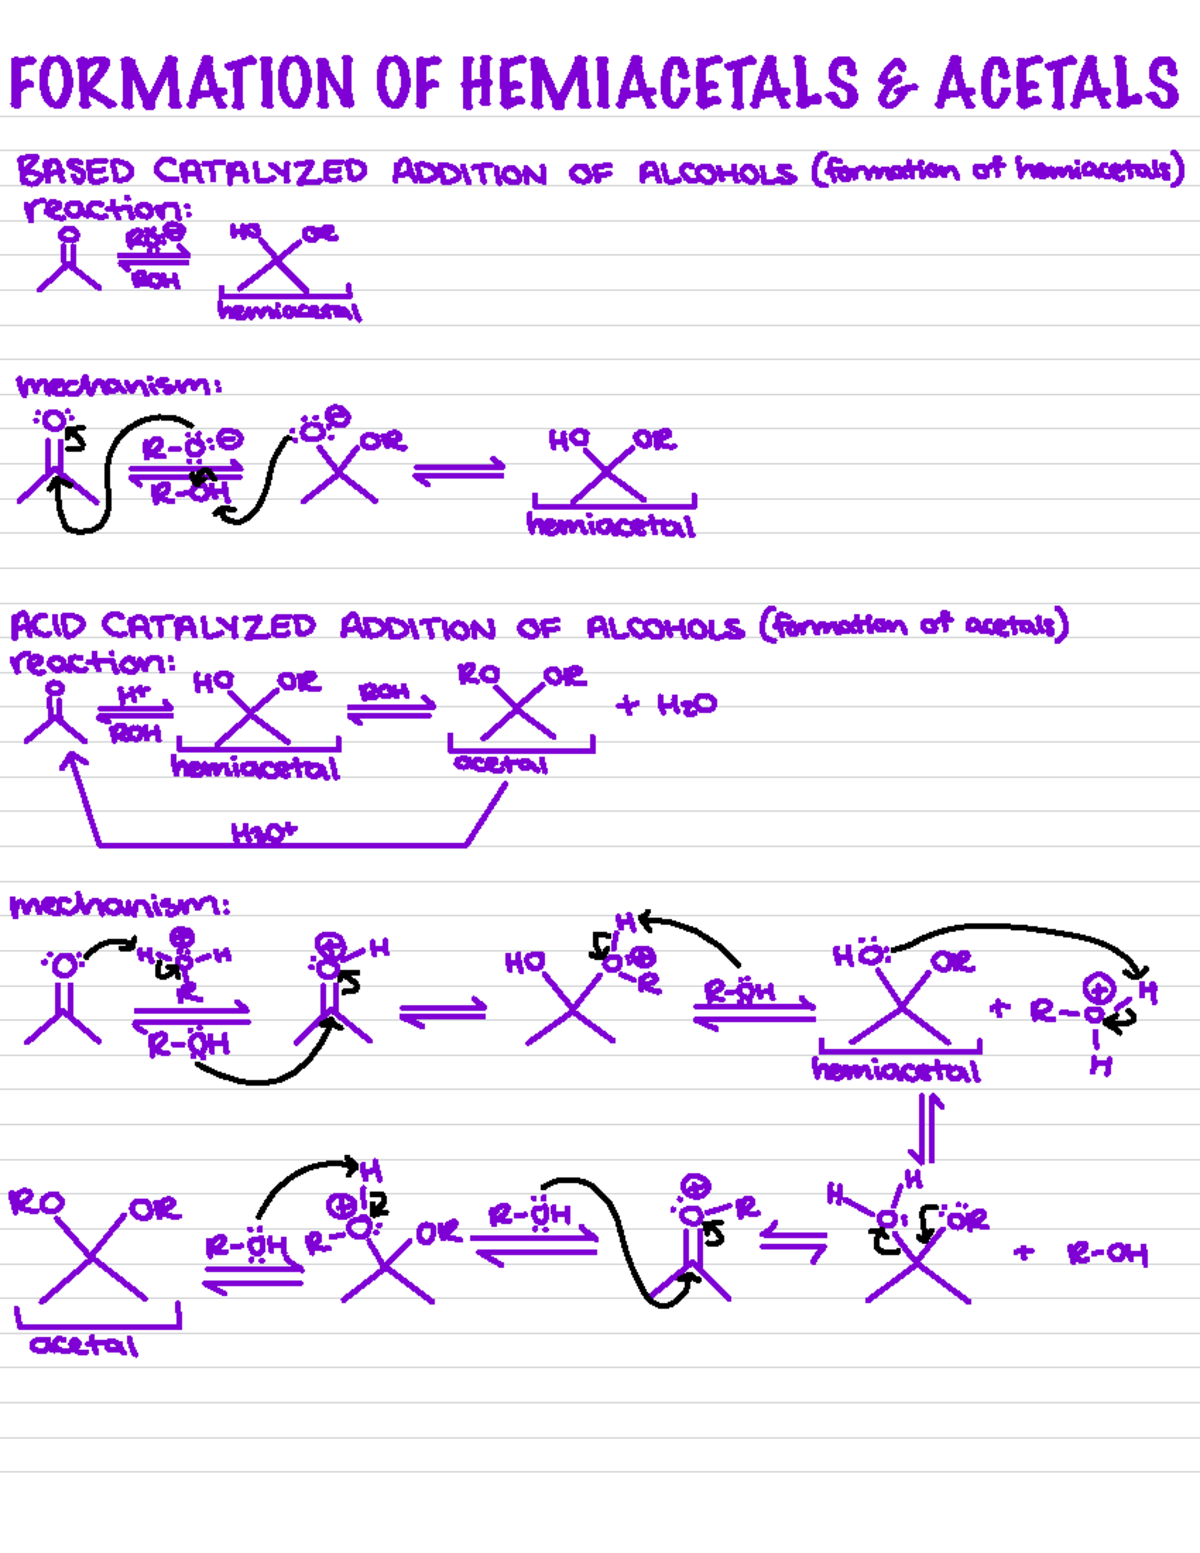 FORMATION OF HEMIACETALS & ACETALS
BASED CATALYZED ADDITION OF ALCOHOLS (formation of hemiacetals)
reaction:
O RO⊖ HO OR
ROH
hemiacetal
mechanism:
:O: R-O:⊖ :O:⊖ OR HO OR
R-OH
hemiacetal
ACID CATALYZED ADDITION OF ALCOHOLS (formation of acetals)
reaction:
O H+ HO OR ROH RO OR + H2O
ROH
hemiacetal acetal
H3O+
mechanism:
:O: H-O⊕-H :O⊕-H HO H O⊕ R R-OH HO: OR + R-O⊕ H
R
R-OH H
hemiacetal
RO OR R-OH R-O: ⊕ H OR R-OH ⊕ :O-R H O: H :OR + R-OH
acetal